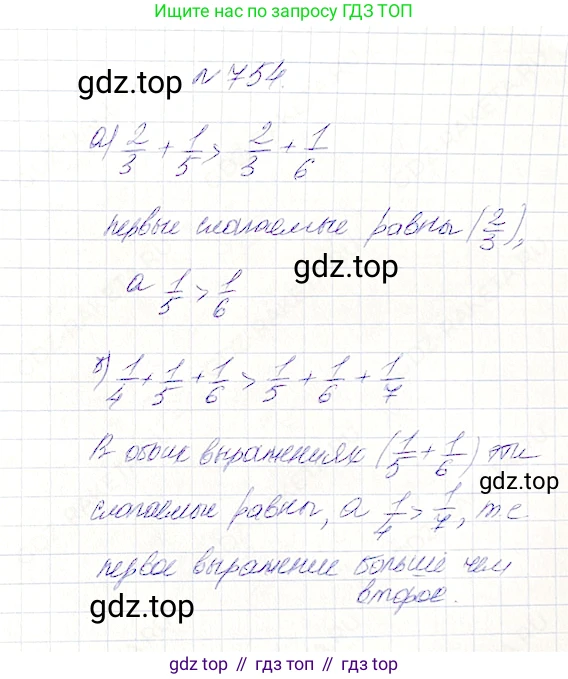 Ищите нас в поиске по запросу ГДЗ ТОП
gdz.top
№ 754.
а) 2/3 + 1/5 > 2/3 + 1/6
первые слагаемые равны (2/3),
gdz.top
а 1/5 > 1/6
б) 1/4 + 1/5 + 1/6 > 1/5 + 1/6 + 1/7
В обоих выражениях (1/5 + 1/6) эти
gdz.top
слагаемые равны, а 1/4 > 1/7, т.е
первое выражение больше чем
второе.
gdz.top
gdz top // гдз топ // gdz.top